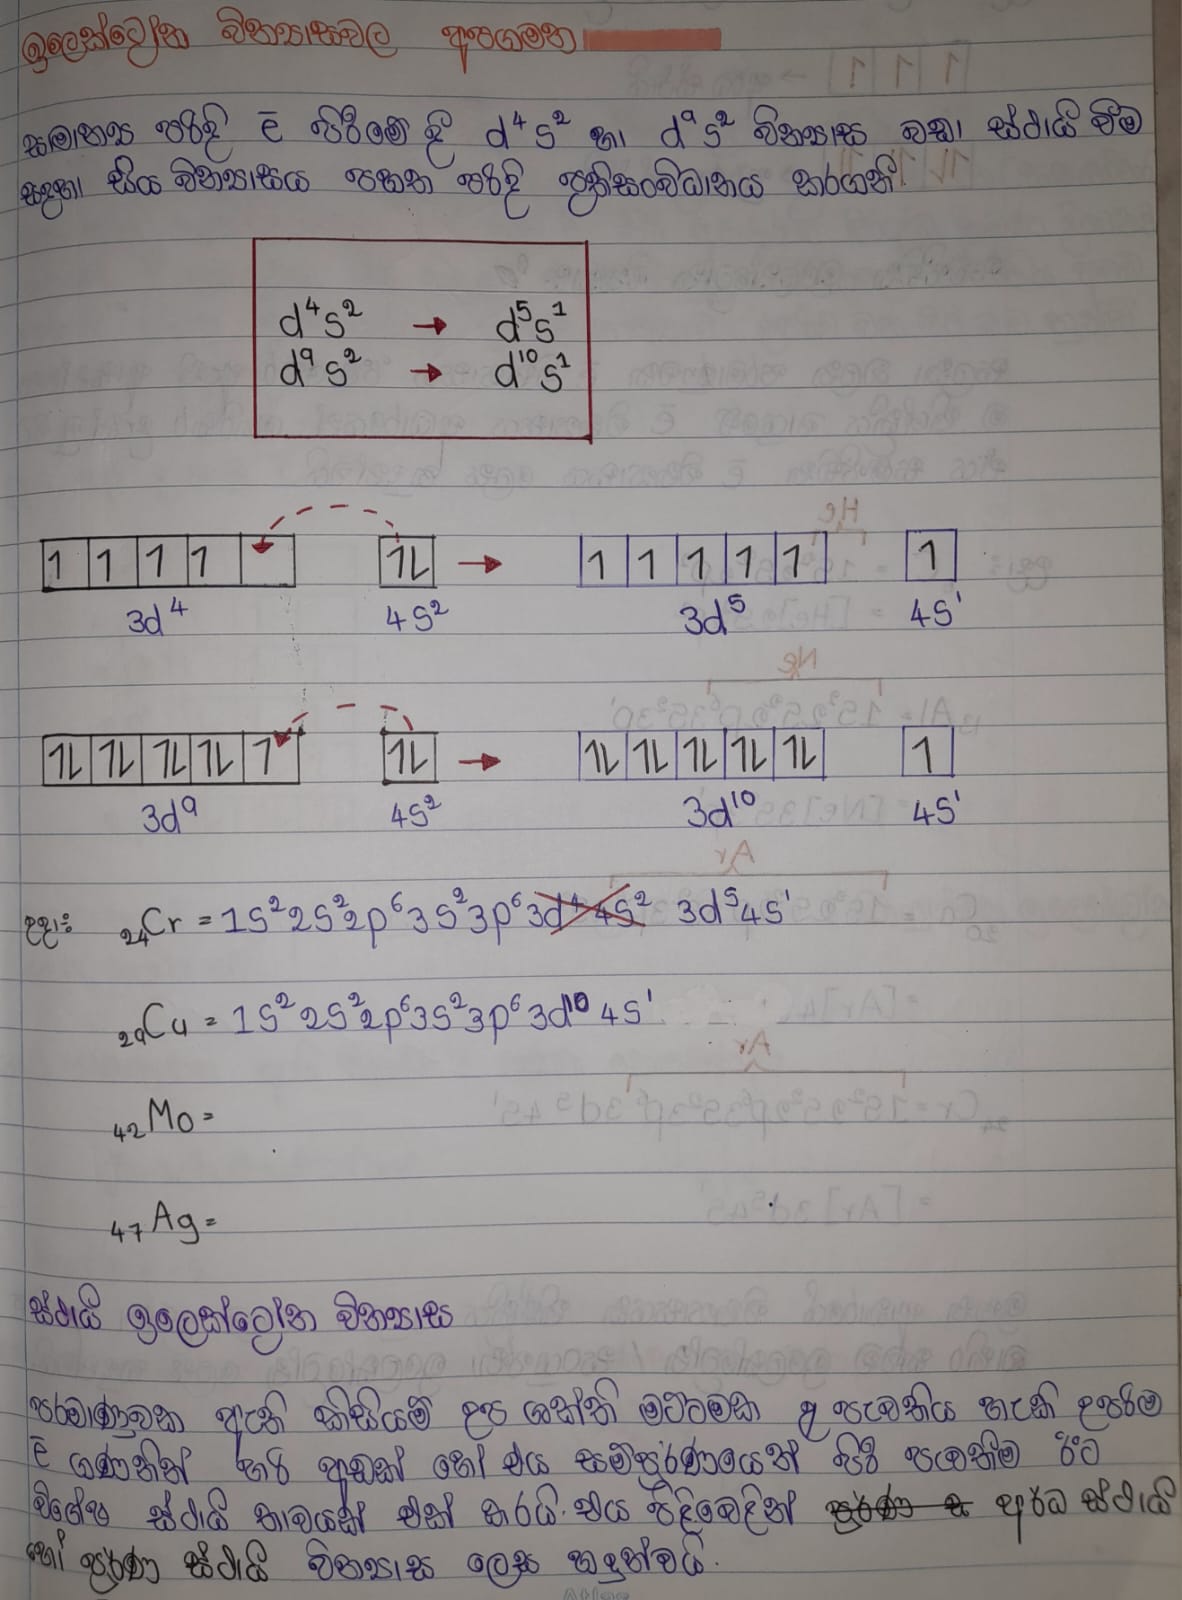 ඉලෙක්ට්‍රෝන වින්‍යාසවල අපගමන
සාමාන්‍ය පරිදි ē පිරීමේ දී d⁴s² හා d⁹s² වින්‍යාස වඩා ස්ථායී වීම
සඳහා සිය වින්‍යාසය පහත පරිදි ප්‍රතිසංවිධානය කරගනී.
d⁴s² → d⁵s¹
d⁹s² → d¹⁰s¹
1 1 1 1 1L → 1 1 1 1 1 1
3d⁴ 4s² 3d⁵ 4s¹
1L 1L 1L 1L 1 1L → 1L 1L 1L 1L 1L 1
3d⁹ 4s² 3d¹⁰ 4s¹
උදා: ₂₄Cr = 1s²2s²2p⁶3s²3p⁶3d⁴4s² 3d⁵4s¹
₂₉Cu = 1s²2s²2p⁶3s²3p⁶3d¹⁰4s¹
₄₂Mo =
₄₇Ag =
ස්ථායී ඉලෙක්ට්‍රෝන වින්‍යාස
පරමාණුවක ඇති කිසියම් උප ශක්ති මට්ටමක පැවතිය හැකි උපරිම
ē ගණනින් හරි අඩක් හෝ එය සම්පූර්ණයෙන් පිරී පැවතීම ඊට
විශේෂ ස්ථායී භාවයක් එක් කරයි. එය පිළිවෙලින් පූර්ණ ස අර්ධ ස්ථායී
හෝ පූර්ණ ස්ථායී වින්‍යාස ලෙස හඳුන්වයි.